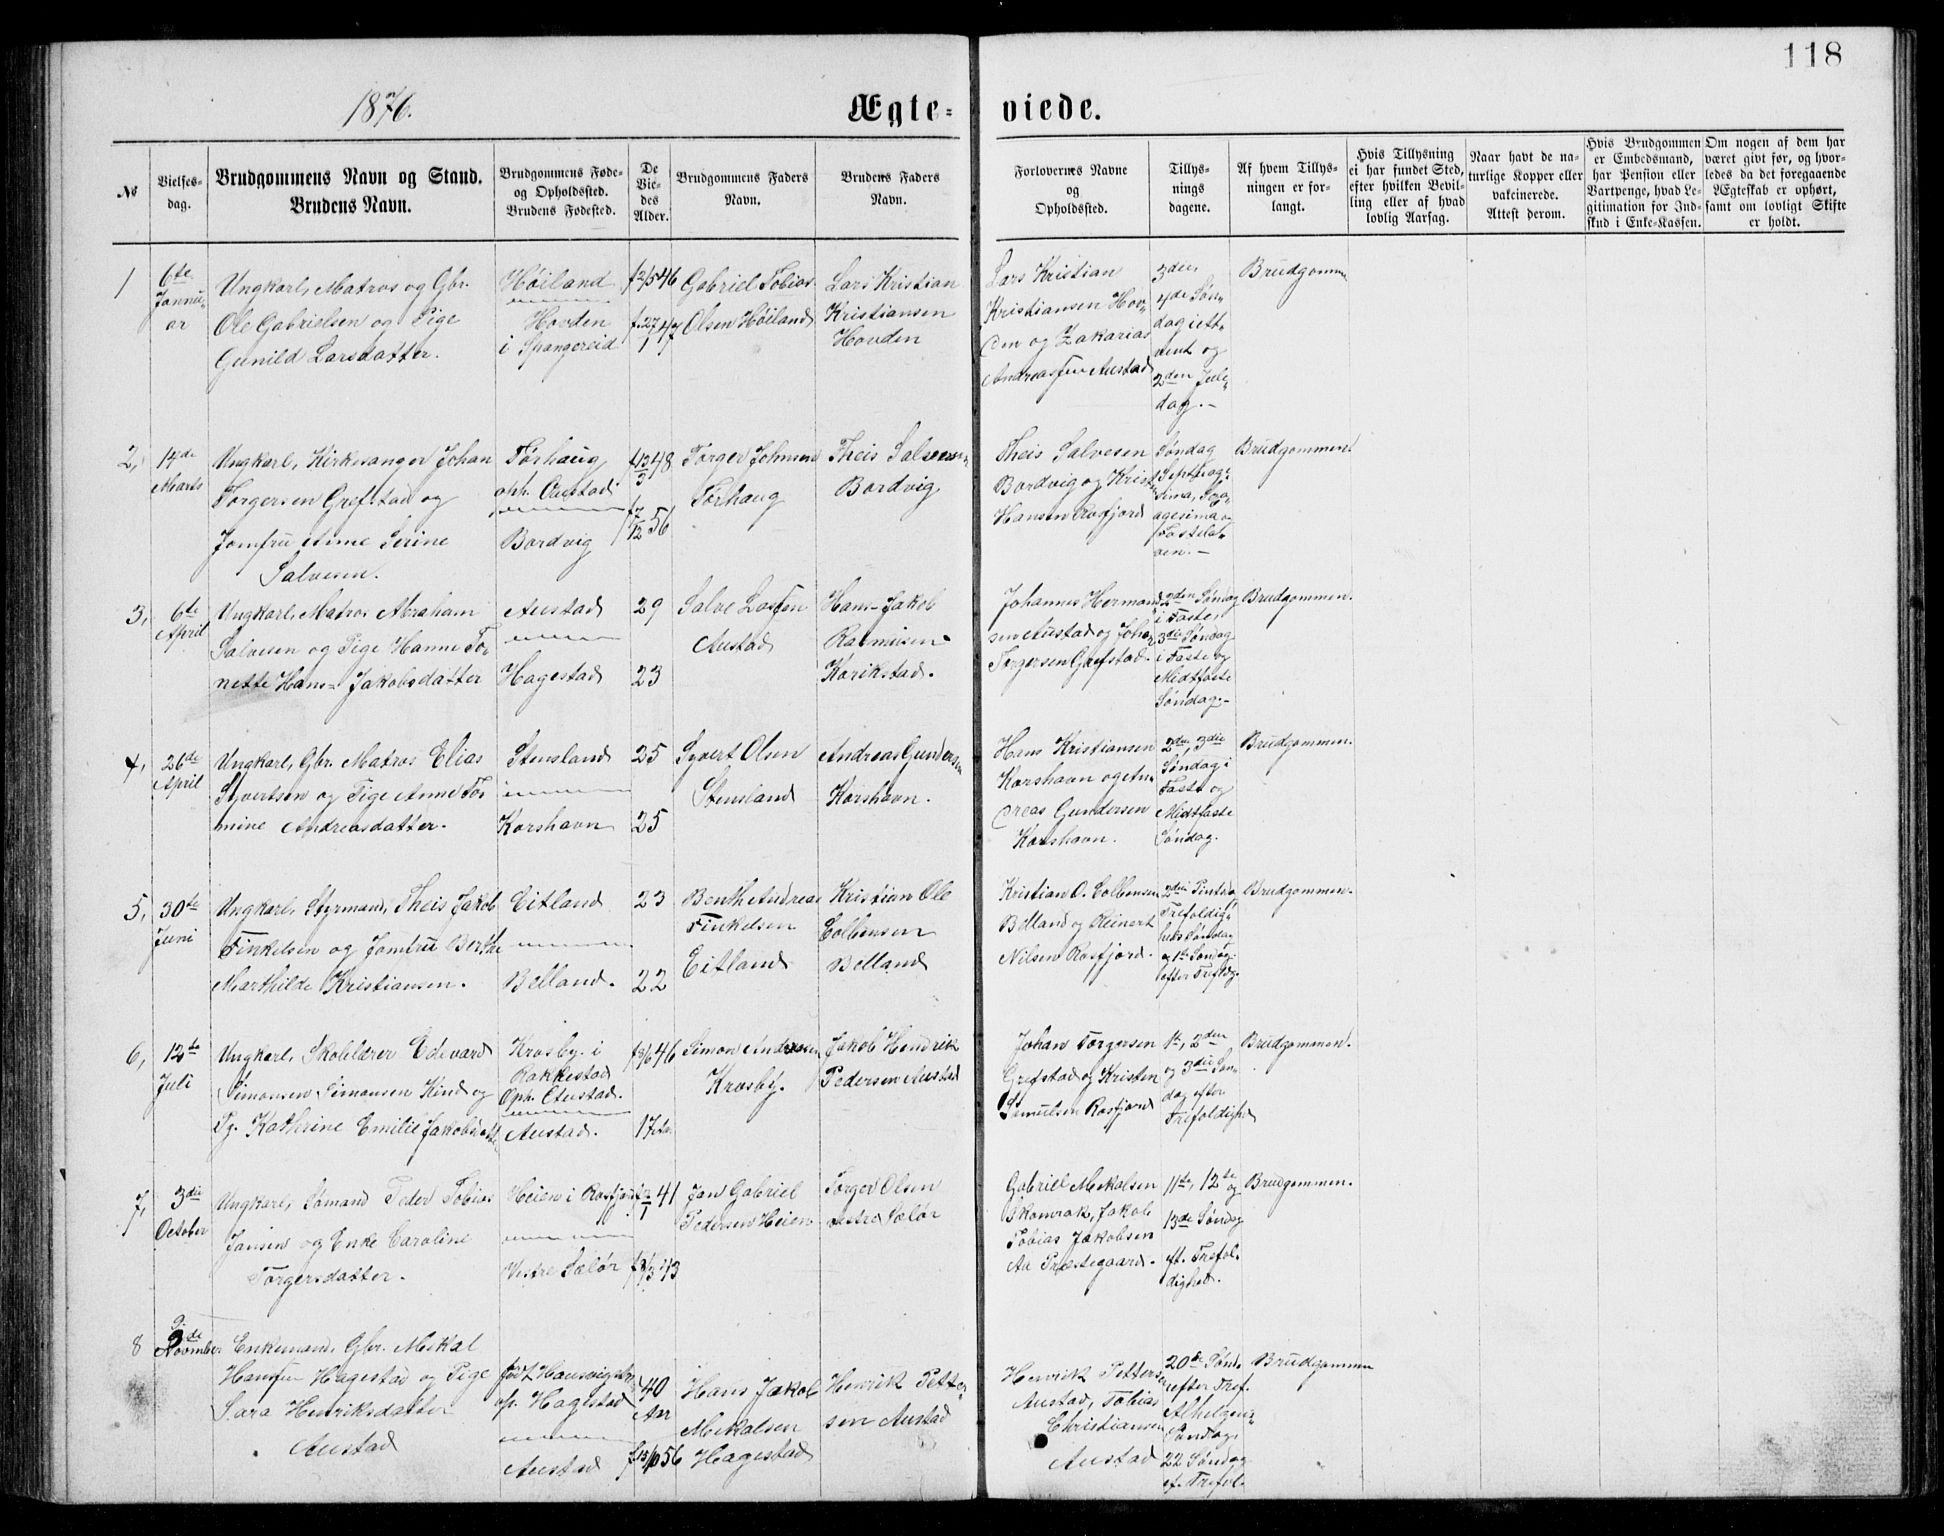 118
1876.
Ægte-
viede.
No
Vielses-
dag.
Brudgommens Navn og Stand.
Brudens Navn.
Brudgommens Føde-
og Opholdssted.
Brudens Fødested.
De
Vie-
des
Alder.
Brudgommens Faders
Navn.
Brudens Faders
Navn.
Forlovernes Navne
og
Opholdssted.
Tillys-
nings
dagene.
Af hvem Tillys-
ningen er for-
langt.
Hvis Tillysning
ei har fundet Sted,
efter hvilken Bevil-
ling eller af hvad
lovlig Aarsag.
Naar havt de na-
turlige Kopper eller
vakcinerede.
Attest derom.
Hvis Brudgommen
er Embedsmand,
har Pension eller
Vartpenge, hvad Le-
gitimation for Ind-
skud i Enke-Kassen.
Om nogen af dem har
været givt før, og hvor-
ledes da det foregaaende
Ægteskab er ophørt,
samt om lovligt Skifte
er holdt.
1
6te
Januu-
ar
Ungkarl, Matros og Gbr.
Ole Gabrielsen og Pige
Gunild Larsdatter.
Høiland
Hovden
i Spangereid
f 2/5 46
f. 27/1 47
Gabriel Tobias
Olsen Høiland
Lars Kristian
Kristiansen
Hovden
Lars Kristian
Kristiansen Hov-
den og Zakarias
Andreassen Austad
3die,
4de Søn-
dag i ett-
vent og
2den Jule-
dag.-
Brudgomme
2,
14de
Marts
Ungkarl, Kirkesanger Johan
Torgersen Grefstad og
Jomfru Anne Serine
Salvesen.
Tørhaug
oph. Austad
Bordvig
f 13/3 48
f 7/12 56
Torger Johnsen
Tørhaug
Theis Salvesen
Bordvig
Theis Salvesen
Bordvig og Krist
Hansen Rosfjord
Søndag
Septuag-
sima, Sexa-
agesima og
Fastela-
ven.-
Brudgommen.
3,
6te
April
Ungkarl, Matros Abraham
Salvesen og Pige Hanne Tor-
nette Hans-Jakobsdatter
Austad
Hagestad
29
23
Salve Lassen
Austad
Hans-Jakob
Rasmusen
Korikstad.
Johannes Hermand-
sen Austad og Johan
Torgersen Grefstad.
2den Søndag
i Faste,
3die Søndag
i Faste og
Midtfaste
Søndag.-
Brudgommen.
4,
26de
April
Ungkarl, Gbr. Matros Elias
Syvertsen og Pige Anne Tor
mine Andreasdatter.
Stensland
Korshavn
25
25
Syvert Olsen
Stensland
Andreas Gundersen
Korshavn.
Hans Kristiansen
Korshavn og An-
dreas Gundersen
Korshavn.
2den, 3die
Søndag i
Faste og
Midtfaste
Søndag.
Brudgommen.
5,
30te
Juni
Ungkarl, Styrmand, Theis Jakob
Finkelsen og Jomfru Berthe
Marthilde Kristiansen.
Eitland
Belland.
23
22
Benth Andreas
Finkelsen
Eitland
Kristian Ole
Colbensen
Belland
Kristian O. Colbensen
Belland og Reinert
Nilsen Rosfjord.
2den Pintsdag
Trefoldig-
heds Søndag
og 1ste Søndag
efter Trefldg.
Brudgommen.
6,
12te
Juli
Ungkarl, Skolelærer Edevard
Simonsen Simonsen Kind og
Pg. Kathrine Emilie Jakobsdatter
Krosby i
Rakkestad
Oph. Austad.
Austad.
f 3/6 46
17
Simon Andersen
Krosby.
Jakob Hendrik
Pedersen Austad
Johan Torgersen
Grefstad og Kristen
Samuelsen Rosfjord
1ste, 2den
og 3die Søn-
dag efter
Trefoldighd
Brudgommen.
7,
3die
October
Ungkarl, Sømand Peder Tobias
Jansen og Enke Caroline
Torgersdatter.
Heien i Rosfjord
Vestre Sælør
41
43
Jan Gabriel
Pedersen Heien
Torger Olsen
vestre Sælør
Gabriel Mekalsen
Skomrak, Jakob
Tobias Jakobsen
Au Præstegaard.
11te, 12te og
13de Søndag
eft. Trefol-
dighed.
Brudgommen.
8
9de
November
Enkemand, Gbr. Mekal
Hansen Hagestad og Pige
Sara Henriksdatter
Austad
op. Hagestad
Austad
40
Aar
f 15/10 56
Hans Jakob
Mekalsen
Hagestad
Henrik Petter-
sen Austad
Henrik Pettersen
Austad, Tobias
Christiansen
Austad
20de Sønd.
efter Tref.
Alhelgen-
Søndag,
22 Søndag
ef. Trefol.
Brudgommen